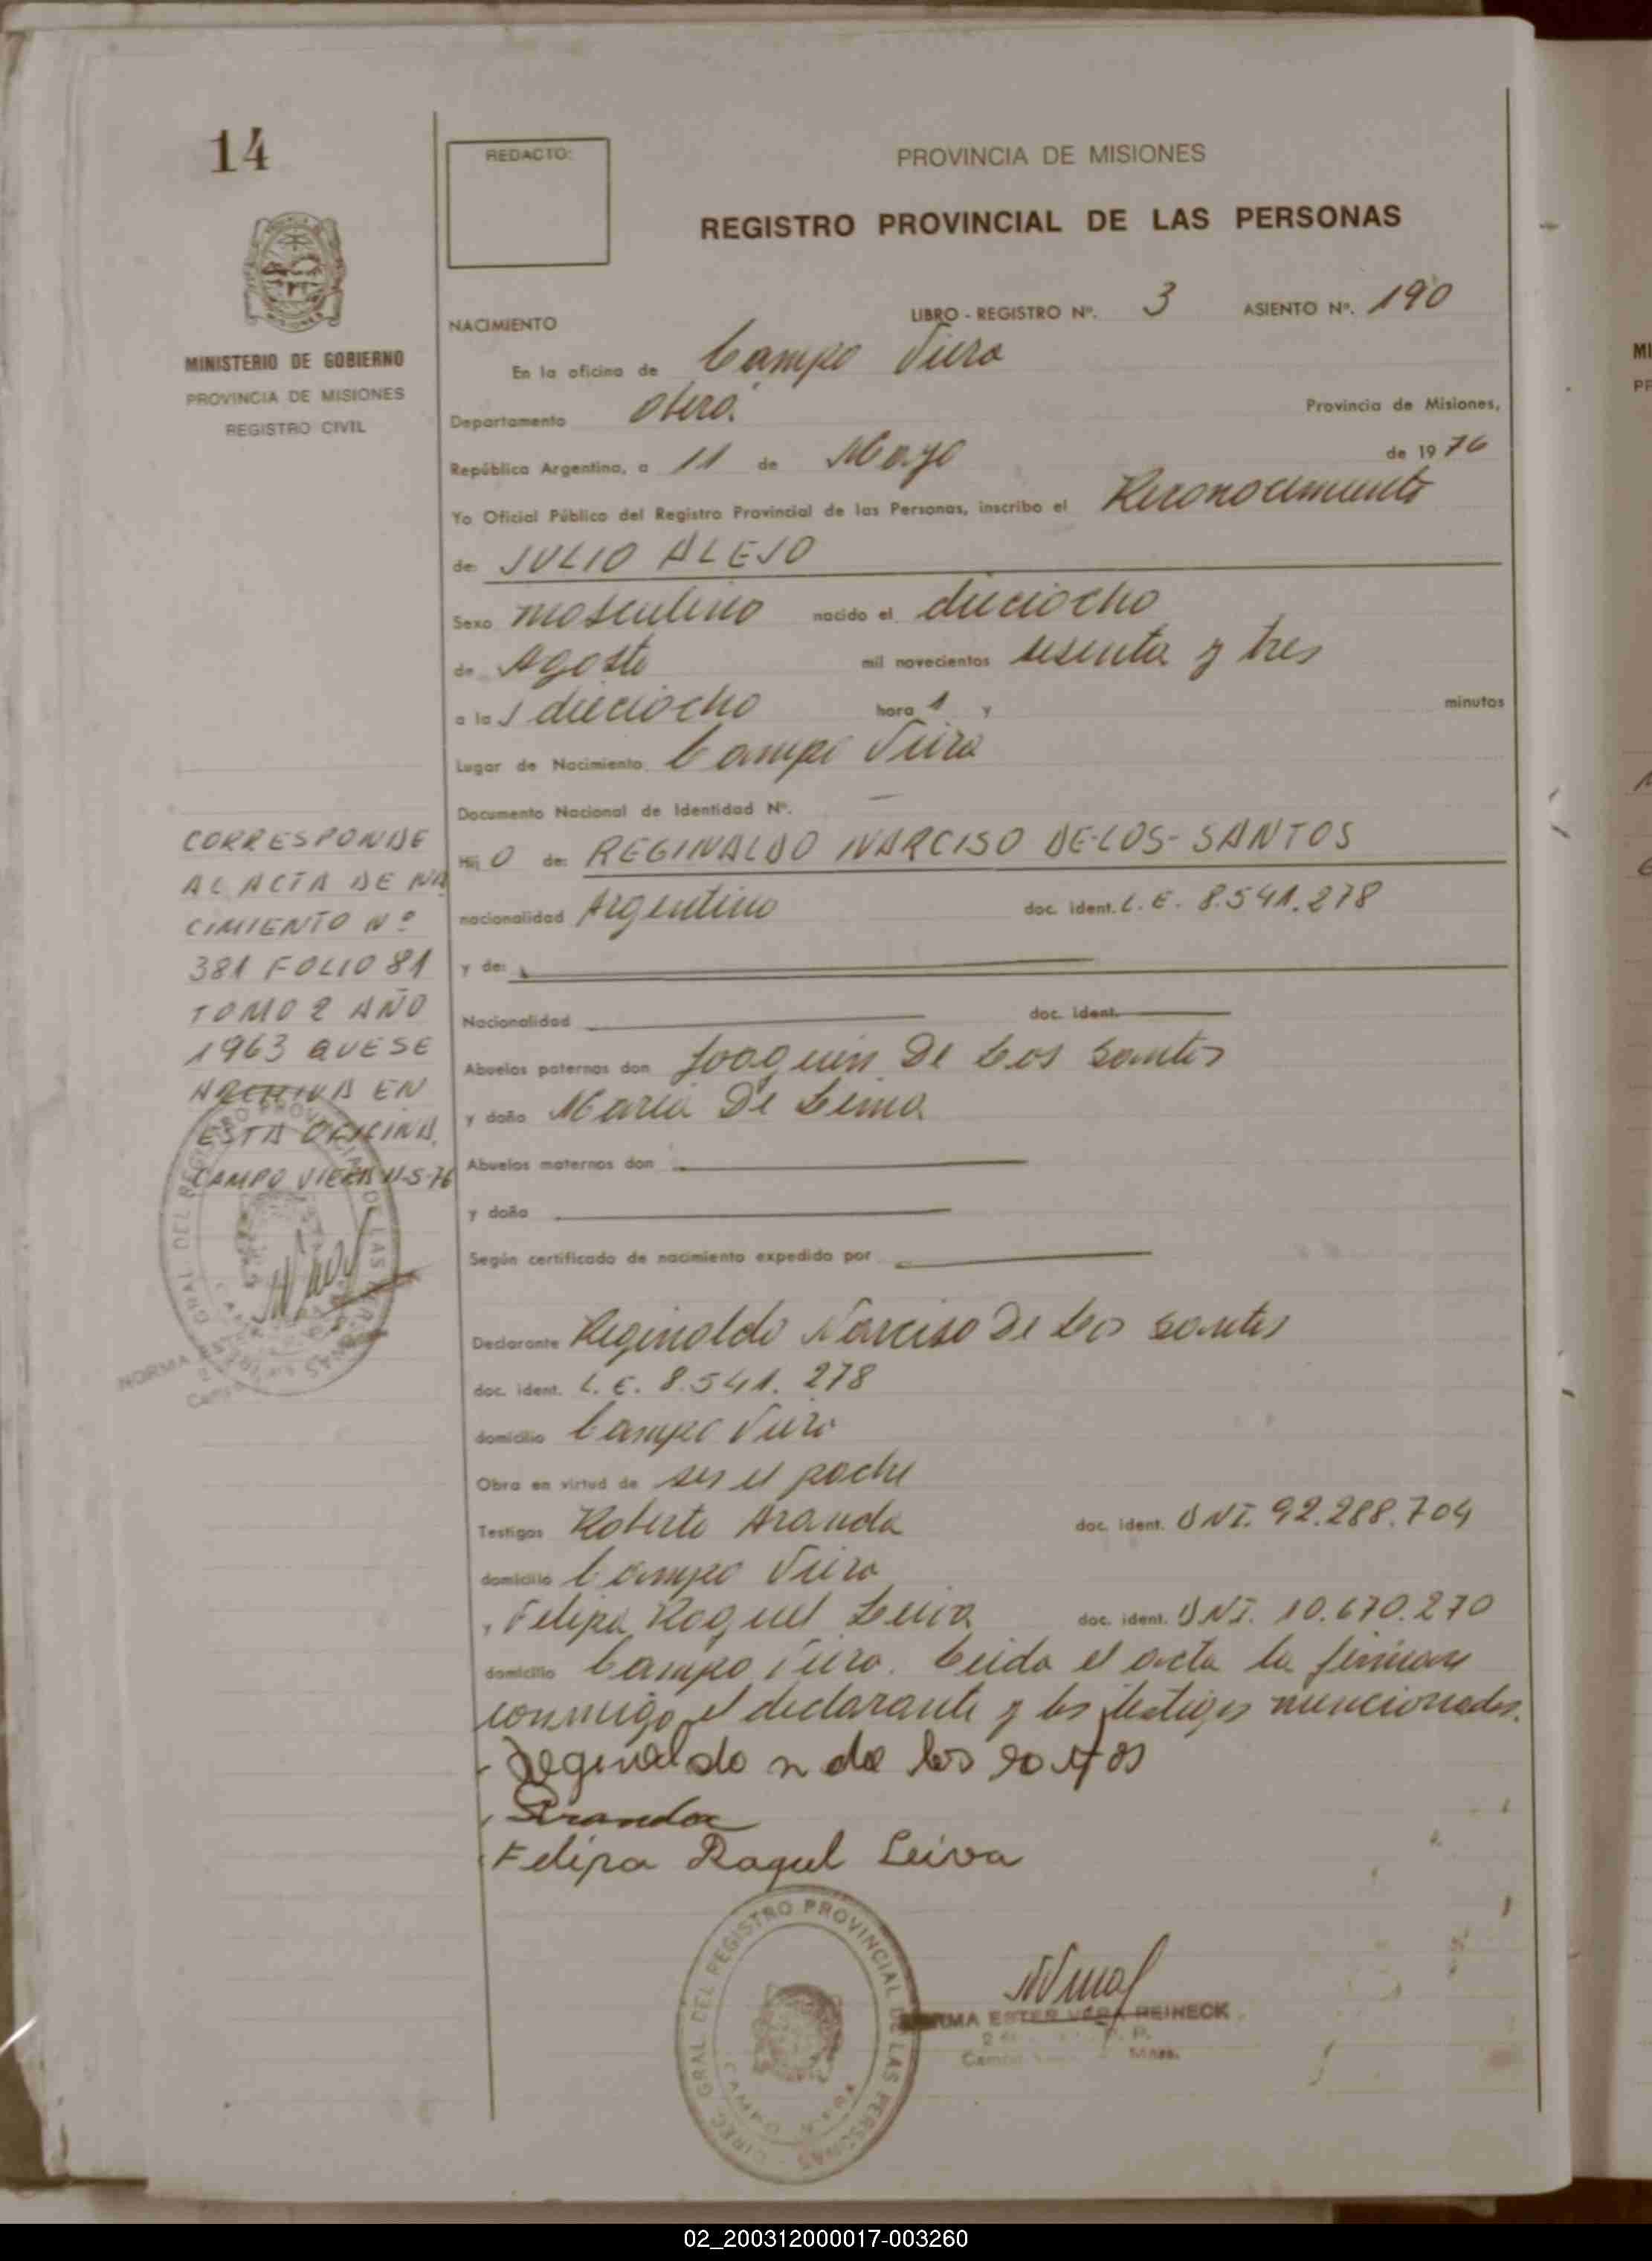 14
REDACTO:
PROVINCIA DE MISIONES
REGISTRO PROVINCIAL DE LAS PERSONAS
MINISTERIO DE GOBIERNO
PROVINCIA DE MISIONES
REGISTRO CIVIL
NACIMIENTO LIBRO - REGISTRO Nº. 3 ASIENTO Nº. 190
En la oficina de Campo Viera
Departamento Oberá. Provincia de Misiones,
República Argentina, a 11 de Mayo de 1976
Yo Oficial Público del Registro Provincial de las Personas, inscribo el Reconocimiento
de: JULIO ALEJO
Sexo masculino nacido el dieciocho
de Agosto mil novecientos sesenta y tres
a las dieciocho hora 1 y minutos
Lugar de Nacimiento Campo Viera
Documento Nacional de Identidad Nº. —
Hijo de: REGINALDO NARCISO DE-LOS-SANTOS
nacionalidad Argentino doc. ident. L. E. 8.541.278
y de:
Nacionalidad doc. ident.
Abuelos paternos don Joaquin De Los Santos
y doña Maria De Lima
Abuelos maternos don
y doña
Según certificado de nacimiento expedido por
Declarante Reginaldo Narciso De Los Santos
doc. ident. L. E. 8.541.278
domicilio Campo Viera
Obra en virtud de ser el padre
Testigos Roberto Aranda doc. ident. DNI. 92.288.704
domicilio Campo Viera
y Felipa Raquel Leiva doc. ident. DNI. 10.670.270
domicilio Campo Viera. Leida el acta la firman
conmigo el declarante y los testigos mencionados.
Reginaldo n de los santos
Aranda
Felipa Raquel Leiva
CORRESPONDE
AL ACTA DE NA
CIMIENTO Nº
381 FOLIO 81
TOMO 2 AÑO
1963 QUE SE
ARCHIVA EN
ESTA OFICINA.
CAMPO VIERA 11-5-76
DIREC. GRAL DEL REGISTRO PROVINCIAL DE LAS PERSONAS
CAMPO VIERA
NORMA ESTER VERA REINECK
02_200312000017-003260